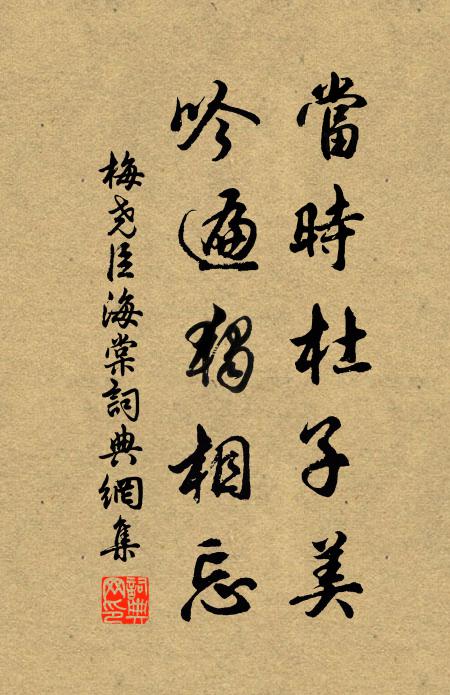 當時杜子美
吟遍獨相忘
梅堯臣海棠詞典網集
詞典網印